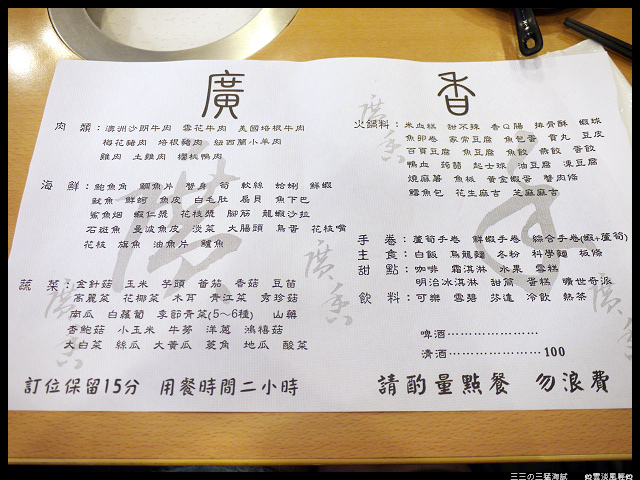 廣 香
肉　類：澳洲沙朗牛肉　雪花牛肉　美國培根牛肉
梅花豬肉　培根豬肉　紐西蘭小羊肉
雞肉　土雞肉　櫻桃鴨肉
海　鮮：鮑魚角　鯛魚片　蟹身　筍　軟絲　蛤蜊　鮮蝦
魷魚　鮮蚵　魚皮　白毛肚　扇貝　魚下巴
鯊魚煙　蝦仁漿　花枝漿　腳筋　龍蝦沙拉
石斑魚　曼波魚皮　淡菜　大腸頭　鳥蛋　花枝嘴
花枝　旗魚　油魚片　鱸魚
蔬　菜：金針菇　玉米　芋頭　番茄　香菇　豆苗
高麗菜　花椰菜　木耳　青江菜　秀珍菇
南瓜　白蘿蔔　季節青菜(5～6種)　山藥
香鮑菇　小玉米　牛蒡　洋蔥　鴻禧菇
大白菜　絲瓜　大黃瓜　菱角　地瓜　酸菜
訂位保留15分　用餐時間二小時
火鍋料：米血糕　甜不辣　香Q腸　排骨酥　蝦球
魚卵卷　家常豆腐　魚包蛋　貢丸　豆皮
百頁豆腐　魚豆腐　魚餃　燕餃　蛋餃
鴨血　蒟蒻　起士球　油豆腐　凍豆腐
燒麻薯　魚板　黃金蝦蛋　蟹肉條
鱈魚包　花生麻吉　芝麻麻吉
手　卷：蘆筍手卷　鮮蝦手卷　綜合手卷(蝦+蘆筍)
主　食：白飯　烏龍麵　冬粉　科學麵　板條
甜　點：咖啡　霜淇淋　水果　雪糕
明治冰淇淋　甜筒　蛋糕　曠世奇派
飲　料：可樂　雪碧　芬達　冷飲　熱茶
啤酒…………………
清酒………………… 100
請酌量點餐　勿浪費
三三の三猛海賊　@雲淡風輕@